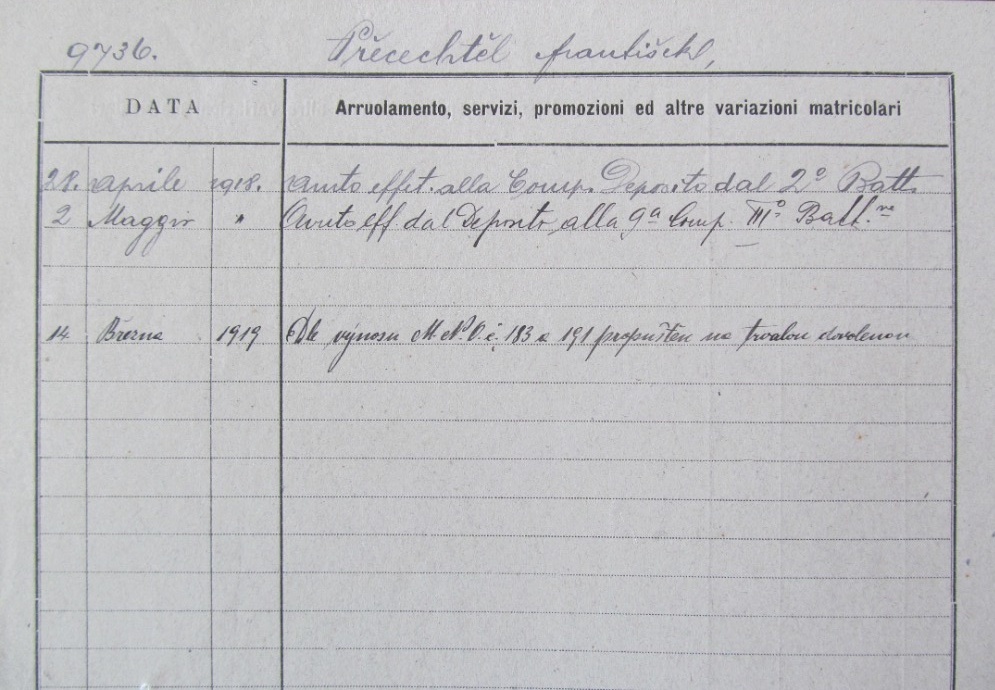 9736. Přecechtěl František,
DATA Arruolamento, servizi, promozioni ed altre variazioni matricolari
28. Aprile 1918. Aunto effet. alla Comp. Deposito dal 2º Batt.
2 Maggio " Aunto eff. dal Deposito alla 9ª Comp. IIIº Batt.ne
14 Března 1919 Dle výnosu M.N.O. č. 183 a 191 propuštěn na trvalou dovolenou